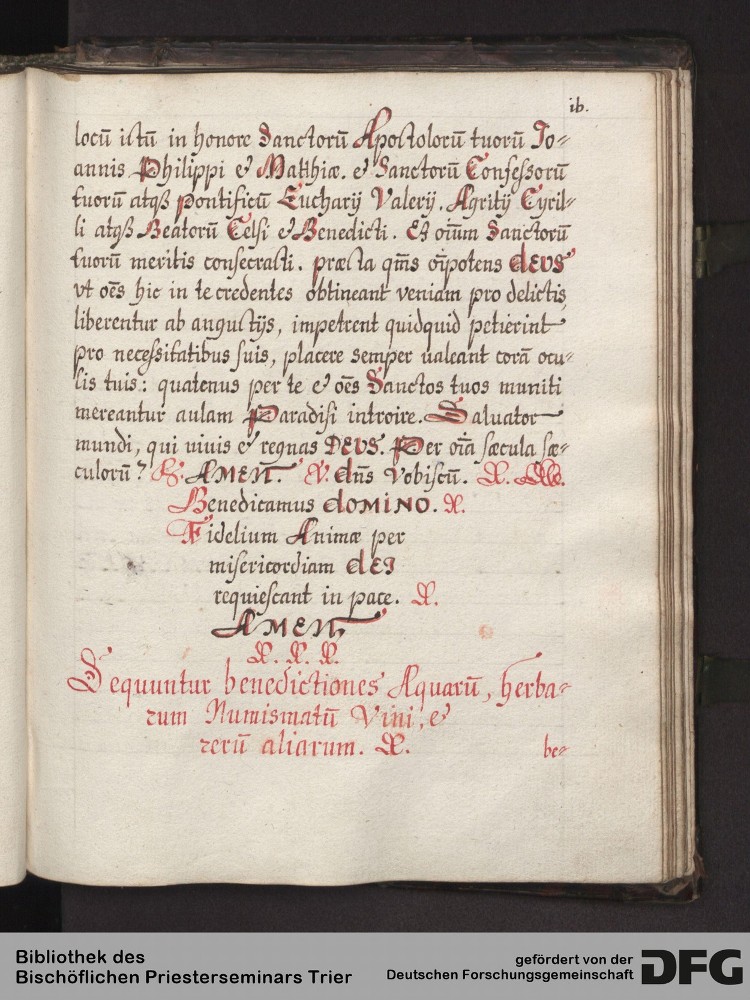 ib.
locū istū in honore Sanctorū Apostolorū tuorū Jo=
annis Philippi & Matthiæ. & Sanctorū Confessorū
tuorū atqß pontificū Eucharij Valerij. Agritij Cyril=
li atqß Beatorū Celsi & Benedicti. Et oiūm Sanctorū
tuorū meritis consecrasti. præsta qm̄s oīpotens DEUS
vt oēs hic in te credentes obtineant veniam pro delictis,
liberentur ab angustijs, impetrent quidquid petierint
pro necessitatibus suis, placere semper ualeant corā ocu=
lis tuis: quatenus per te & oēs Sanctos tuos muniti
mereantur aulam Paradisi introire. Saluator
mundi, qui viuis & regnas DEUS. Per oīa sæcula sæ=
culorū? AMEN. V. dn̄s vobiscū.
Benedicamus DOMINO. R.
Fidelium Animæ per
misericordiam DEI
requiescant in pace. R.
AMEN
R. R. R.
Sequuntur benedictiones Aquarū, herba=
rum Numismatū Vini, &
rerū aliarum. R.
be=
Bibliothek des
Bischöflichen Priesterseminars Trier
gefördert von der
Deutschen Forschungsgemeinschaft DFG